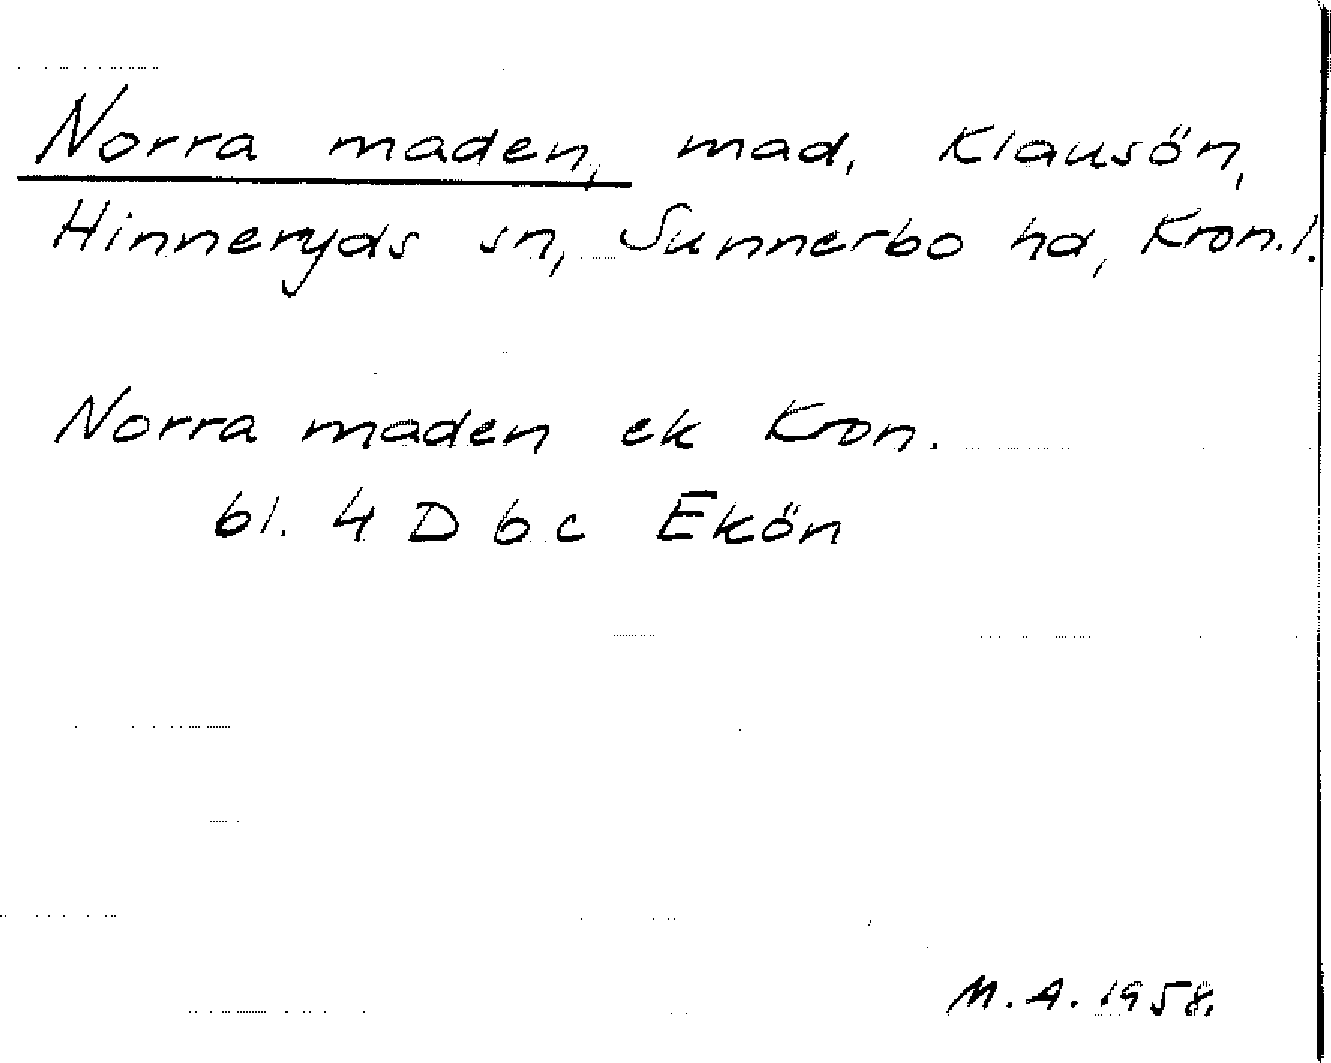 Norra maden, mad, Klausön,
Hinneryds sn, Sunnerbo hd, Kron.l.
Norra maden ek Kron.
bl. 4 D b c Ekön
M.A. 1958.